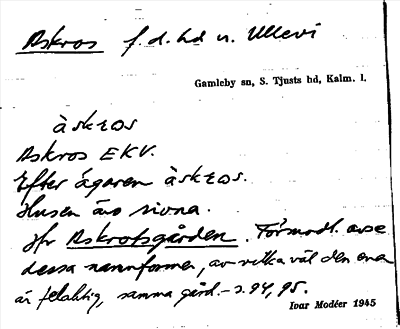 Askros f.d. hd u. Ullevi
Gamleby sn, S. Tjusts hd, Kalm. l.
àskros
Askros EKV.
Efter ägaren àskros.
Husen äro rivna.
Jfr Askrotsgården. Förmodl. avse
dessa namnformer, av vilka väl den ena
är felaktig, samma gård. - s. 94, 95.
Ivar Modéer 1945